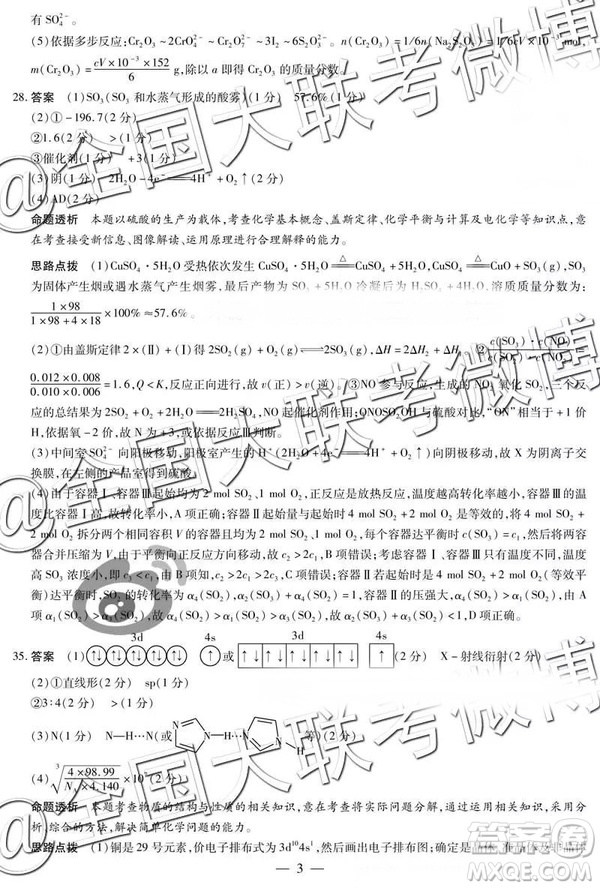 有 SO₄²⁻。
(5)依据多步反应:Cr₂O₃ ~2CrO₄²⁻ ~Cr₂O₇²⁻ ~3I₂ ~6S₂O₃²⁻。n(Cr₂O₃)=1/6n(Na₂S₂O₃)=1/6cV×10⁻³ mol,
m(Cr₂O₃)=(cV×10⁻³×152)/6 g,除以 a 即得 Cr₂O₃ 的质量分数。
28. 答案 (1)SO₃(SO₃ 和水蒸气形成的酸雾)(1 分) 57.6%(1 分)
(2)①-196.7(2 分)
②1.6(2 分) >(1 分)
③催化剂(1 分) +3(1 分)
(3)阴(1 分) 2H₂O-4e⁻═4H⁺+O₂↑(2 分)
(4)AD(2 分)
命题透析 本题以硫酸的生产为载体,考查化学基本概念、盖斯定律、化学平衡与计算及电化学等知识点,意
在考查接受新信息、图像解读、运用原理进行合理解释的能力。
思路点拨 (1)CuSO₄·5H₂O 受热依次发生 CuSO₄·5H₂O △═ CuSO₄+5H₂O,CuSO₄ △═ CuO+SO₃(g),SO₃
为固体产生烟或遇水蒸气产生烟雾,最后产生的 SO₃+5H₂O 冷凝后为 H₂SO₄+4H₂O,溶质质量分数为:
(1×98)/(1×98+4×18)×100%≈57.6%。
(2)①由盖斯定律 2×(Ⅱ)+(Ⅰ)得 2SO₂(g)+O₂(g)⇌2SO₃(g),ΔH=2ΔH₂+ΔH₁。②
(0.012×0.008)/(0.010×0.006)=1.6,Q<K,反应正向进行,故 v(正)>v(逆)。③NO 参与反应,生成的 NO₂ 氧化 SO₂,三个反
应的总结果为 2SO₂+O₂+2H₂O═2H₂SO₄,NO 起催化剂作用;QNOSO₂OH 与硫酸对比,“ON”相当于+1 价
H,依据氧-2 价,故 N 为+3,或依据反应Ⅲ判断。
(3)中间室 SO₄²⁻ 向阳极移动,阳极室产生的 H⁺(2H₂O-4e⁻═4H⁺+O₂↑)向阴极移动,故 X 为阴离子交
换膜,在左侧的产品室得到硫酸。
(4)由于容器Ⅰ、容器Ⅲ起始均为 2 mol SO₂、1 mol O₂,正反应是放热反应,温度越高转化率越小,容器Ⅲ的温
度比容器Ⅰ高,故转化率小,A 项正确;容器Ⅱ起始量与容器Ⅰ起始量是等效的,将 4 mol SO₂、2 mol
O₂ 拆分两个相同的 V 的容器且均为 2 mol SO₂、1 mol O₂,每个容器达平衡时,c(SO₃)=c₁,然后将两容器合
并并压缩为 V,由于平衡向正反应方向移动,故 c₂>2c₁,B 项错误;考虑容器Ⅰ、Ⅲ只有温度不同,平衡后容器Ⅲ SO₃
浓度小,即 c₃<c₁,由 B 项知,c₂>2c₁>2c₃,C 项错误;容器Ⅱ若起始为 4 mol SO₂ 和 2 mol O₂(等效平
衡)达平衡时,SO₂ 的转化率为 α₄(SO₂),α₂(SO₃)+α₄(SO₂)=1,容器Ⅱ的压强大,故 α₄(SO₂)>α₁(SO₂),又
α₁(SO₂)>α₃(SO₂),故 α₂(SO₃)+α₃(SO₂)<1,D 项正确。
35. 答案 (1) 3d 4s 或 3d 4s (2 分) X-射线衍射(2 分)
(2)①直线形(2 分) sp(1 分)
②3:4(2 分) >(1 分)
(3)N(1 分) N—H⋯N(或 N N—H⋯N N H 等)(2 分)
(4)³√((4×98.99)/(Nₐ×4.140))×10⁷(2 分)
命题透析 本题考查物质的结构与性质的相关知识,意在考查将实际问题分解,通过运用相关知识,采用分
析、综合的方法,解决简单化学问题的能力。
思路点拨 (1)铜是 29 号元素,价电子排布式为 3d¹⁰4s¹,然后画出电子排布图;
— 3 —
@全国大联考微博
@全国大联考微博
@全国大联考微博
答案圈
MXQE.COM